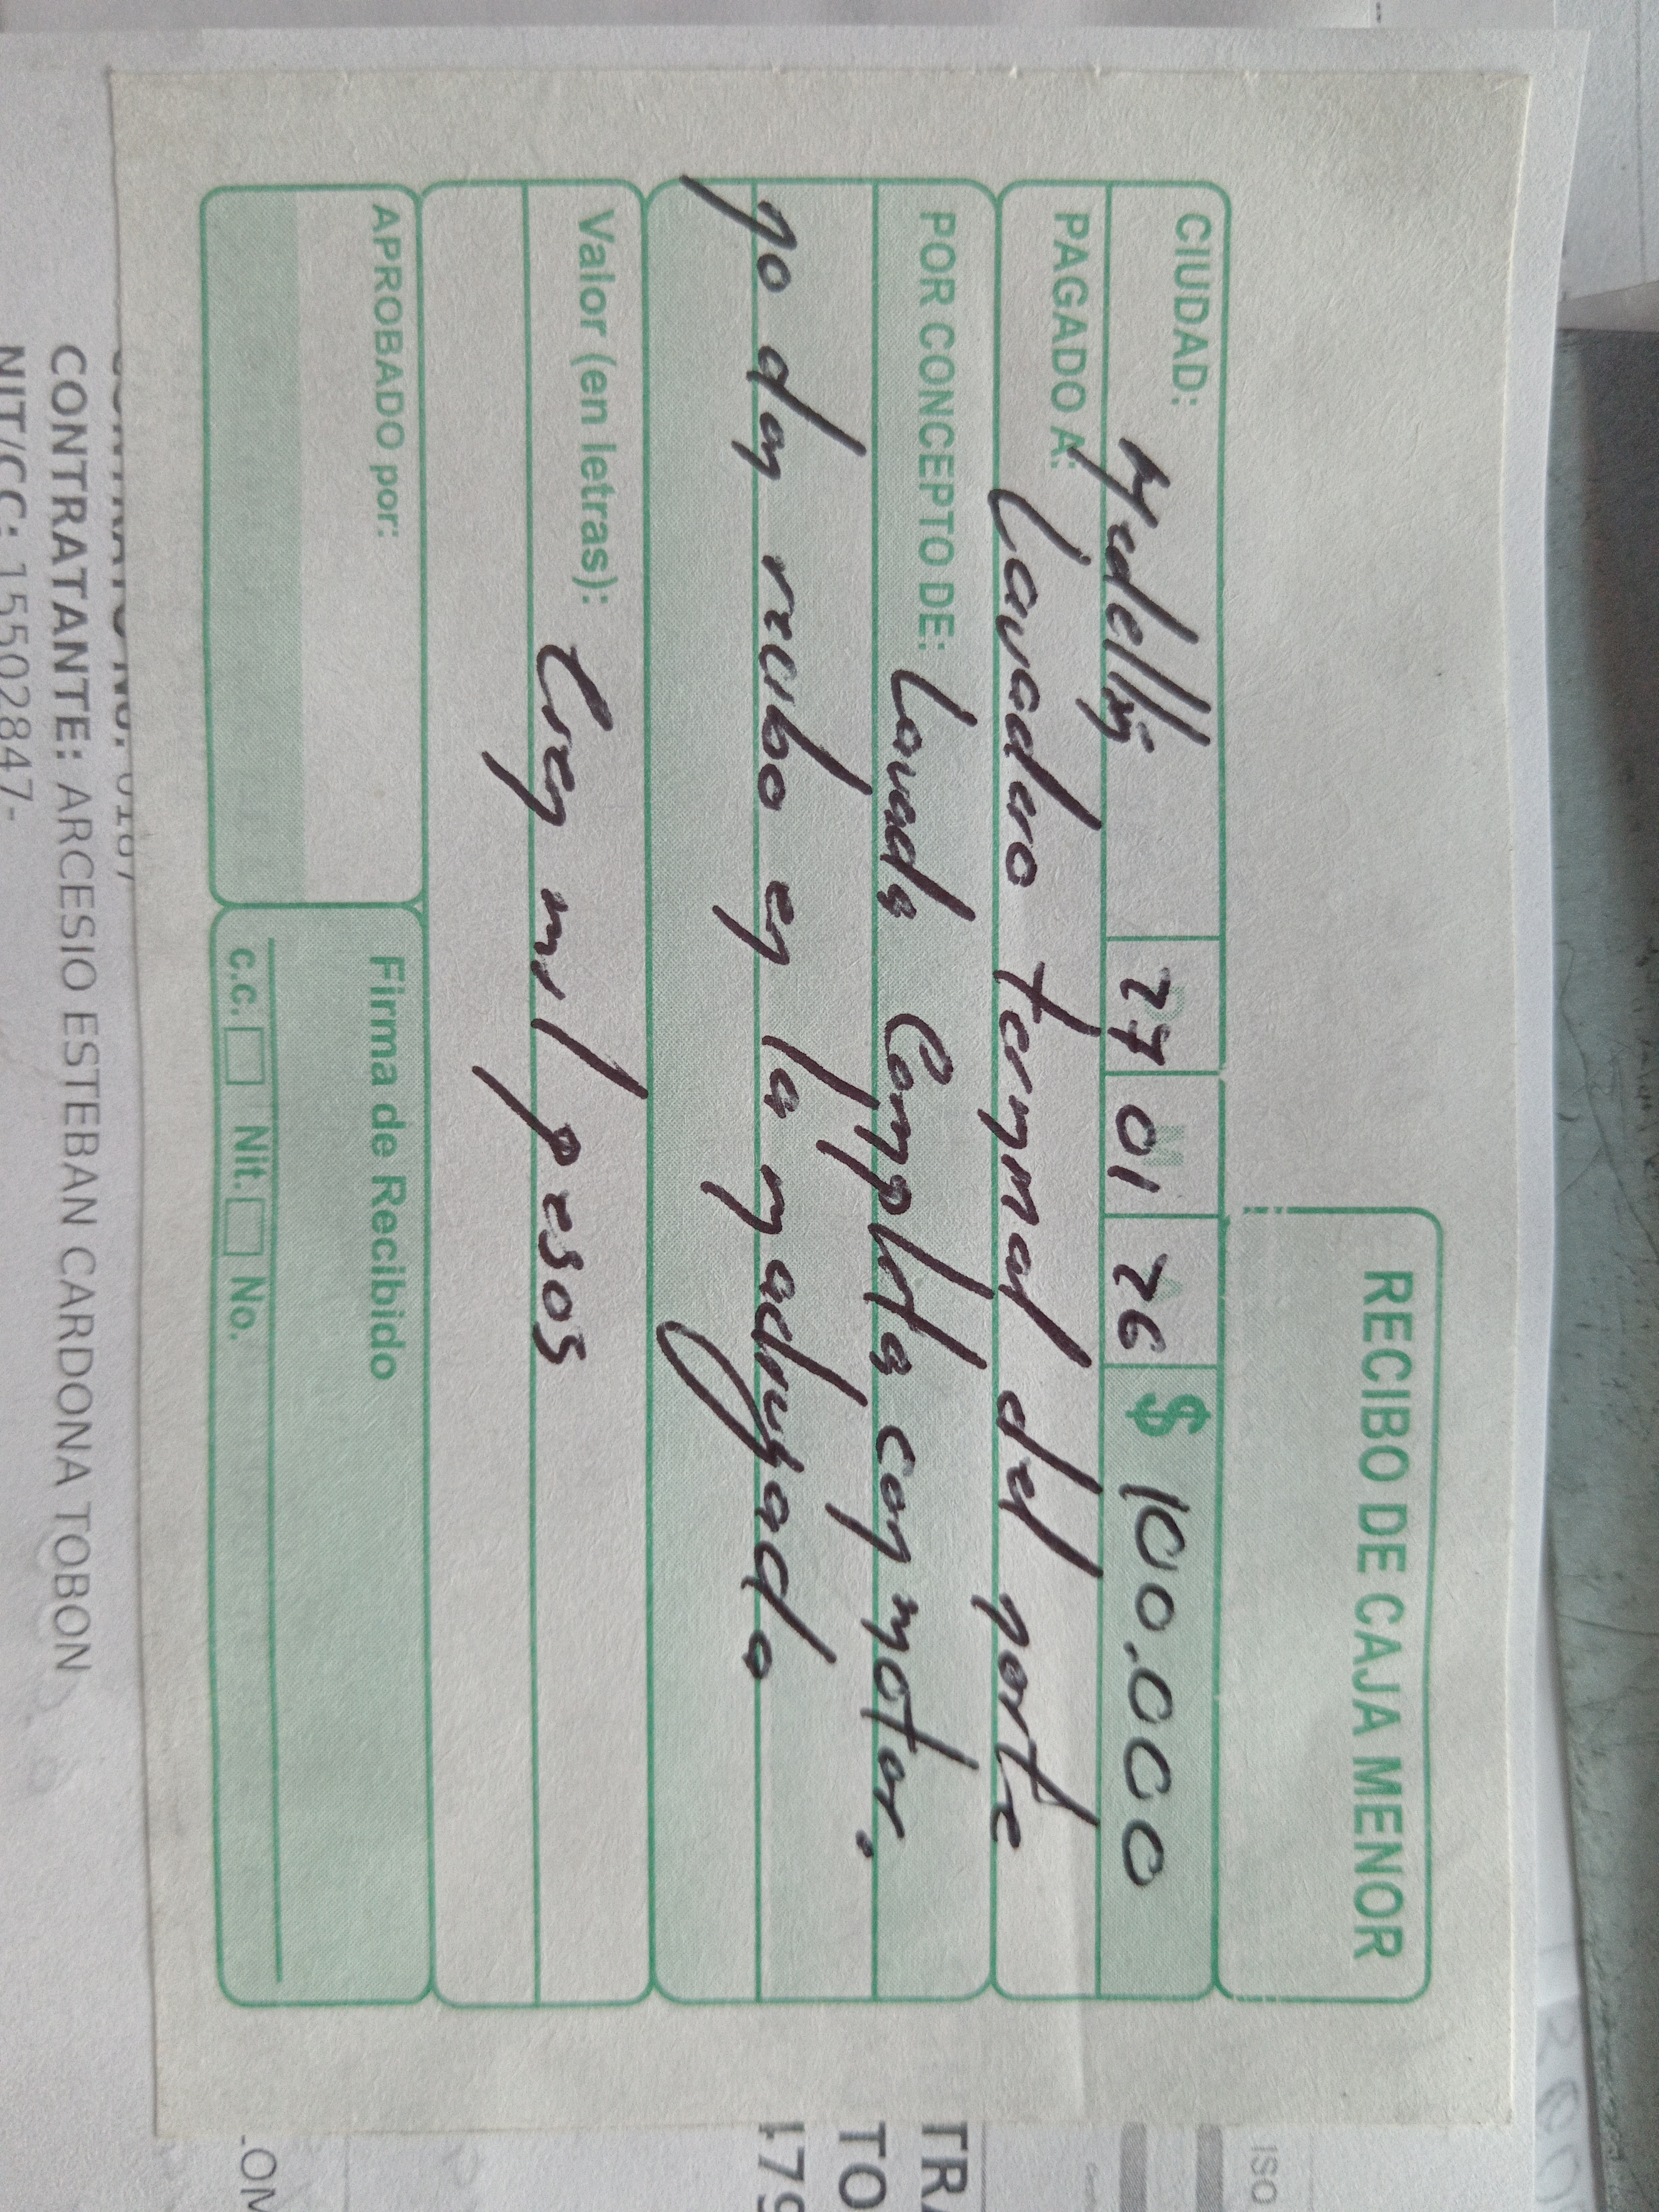 RECIBO DE CAJA MENOR
CIUDAD: Medellin 27 01 26 $ 100.000
PAGADO A: Lavadero terminal del norte
POR CONCEPTO DE: Lavada Completa con motor,
no dan recibo en la madrugada
Valor (en letras): Cien mil pesos
APROBADO por:
Firma de Recibido
c.c. Nit. No.
CONTRATANTE: ARCESIO ESTEBAN CARDONA TOBON
NIT/CC: 15502847-
ISO
TRA
TO
179